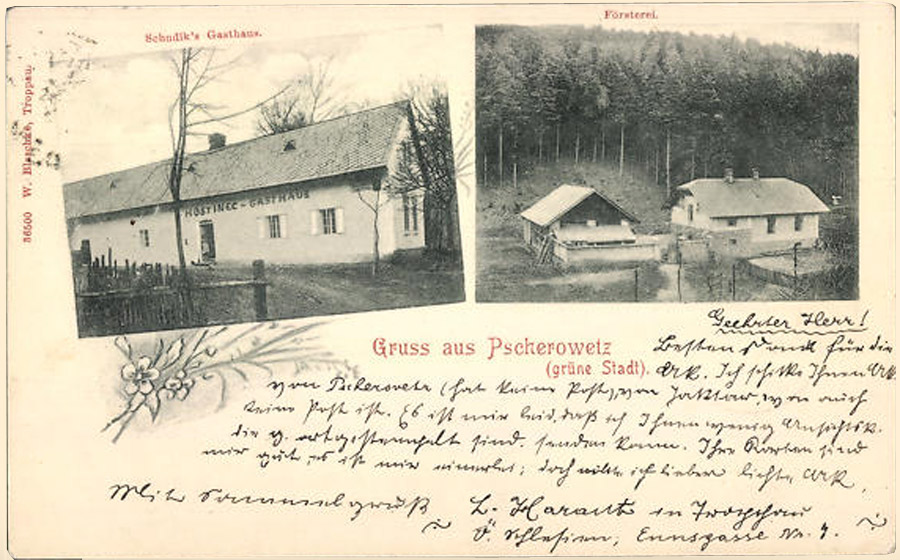 Schudik's Gasthaus.
Försterei.
36500 W. Blaschke, Troppau.
HOSTINEC - GASTHAUS
Gruss aus Pscherowetz
(grüne Stadt).
Geehrter Herr!
Besten Dank für die
Ak. Ich schicke Ihnen Ak.
von Pscherowetz (hat keine Post), von Jaktar, wo auch
keine Post ist. Es ist mir leid, daß ich Ihnen wenig Ansichtsk.
die g. ortgestempelt sind, senden kann. Ihre Karten sind
mir gut, es ist mir einerlei; doch möchte ich lieber lichte Ak.
Mit Sammelgruß
L. Harant in Troppau
Ö. Schlesien, Ennsgasse Nr. 7.